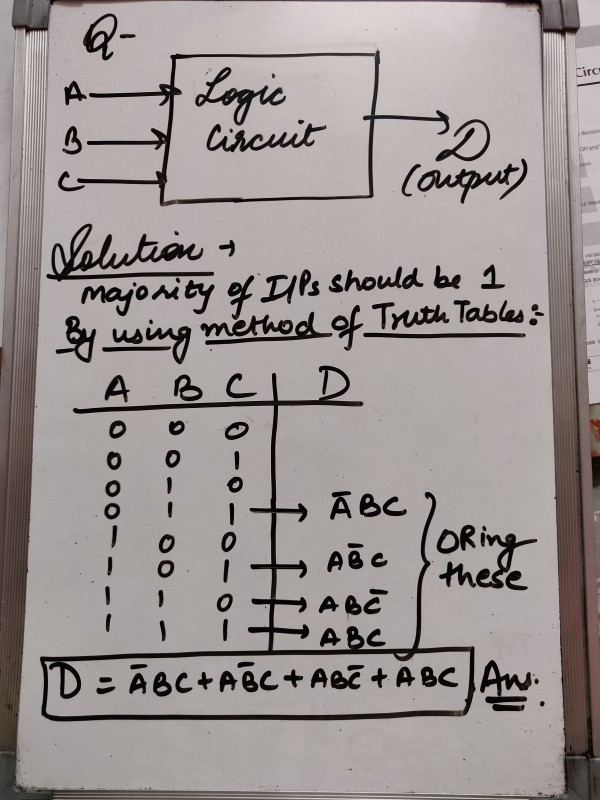 Q-
A
Logic
B
Circuit
C
D
(output)
Solution →
majority of I/Ps should be 1
By using method of Truth Tables:-
A B C D
0 0 0
0 0 1
0 1 0
0 1 1 → A̅BC
1 0 0
1 0 1 → AB̅C
1 1 0 → ABC̅
1 1 1 → ABC
ORing
these
D = A̅BC + AB̅C + ABC̅ + ABC Ans.
Circu